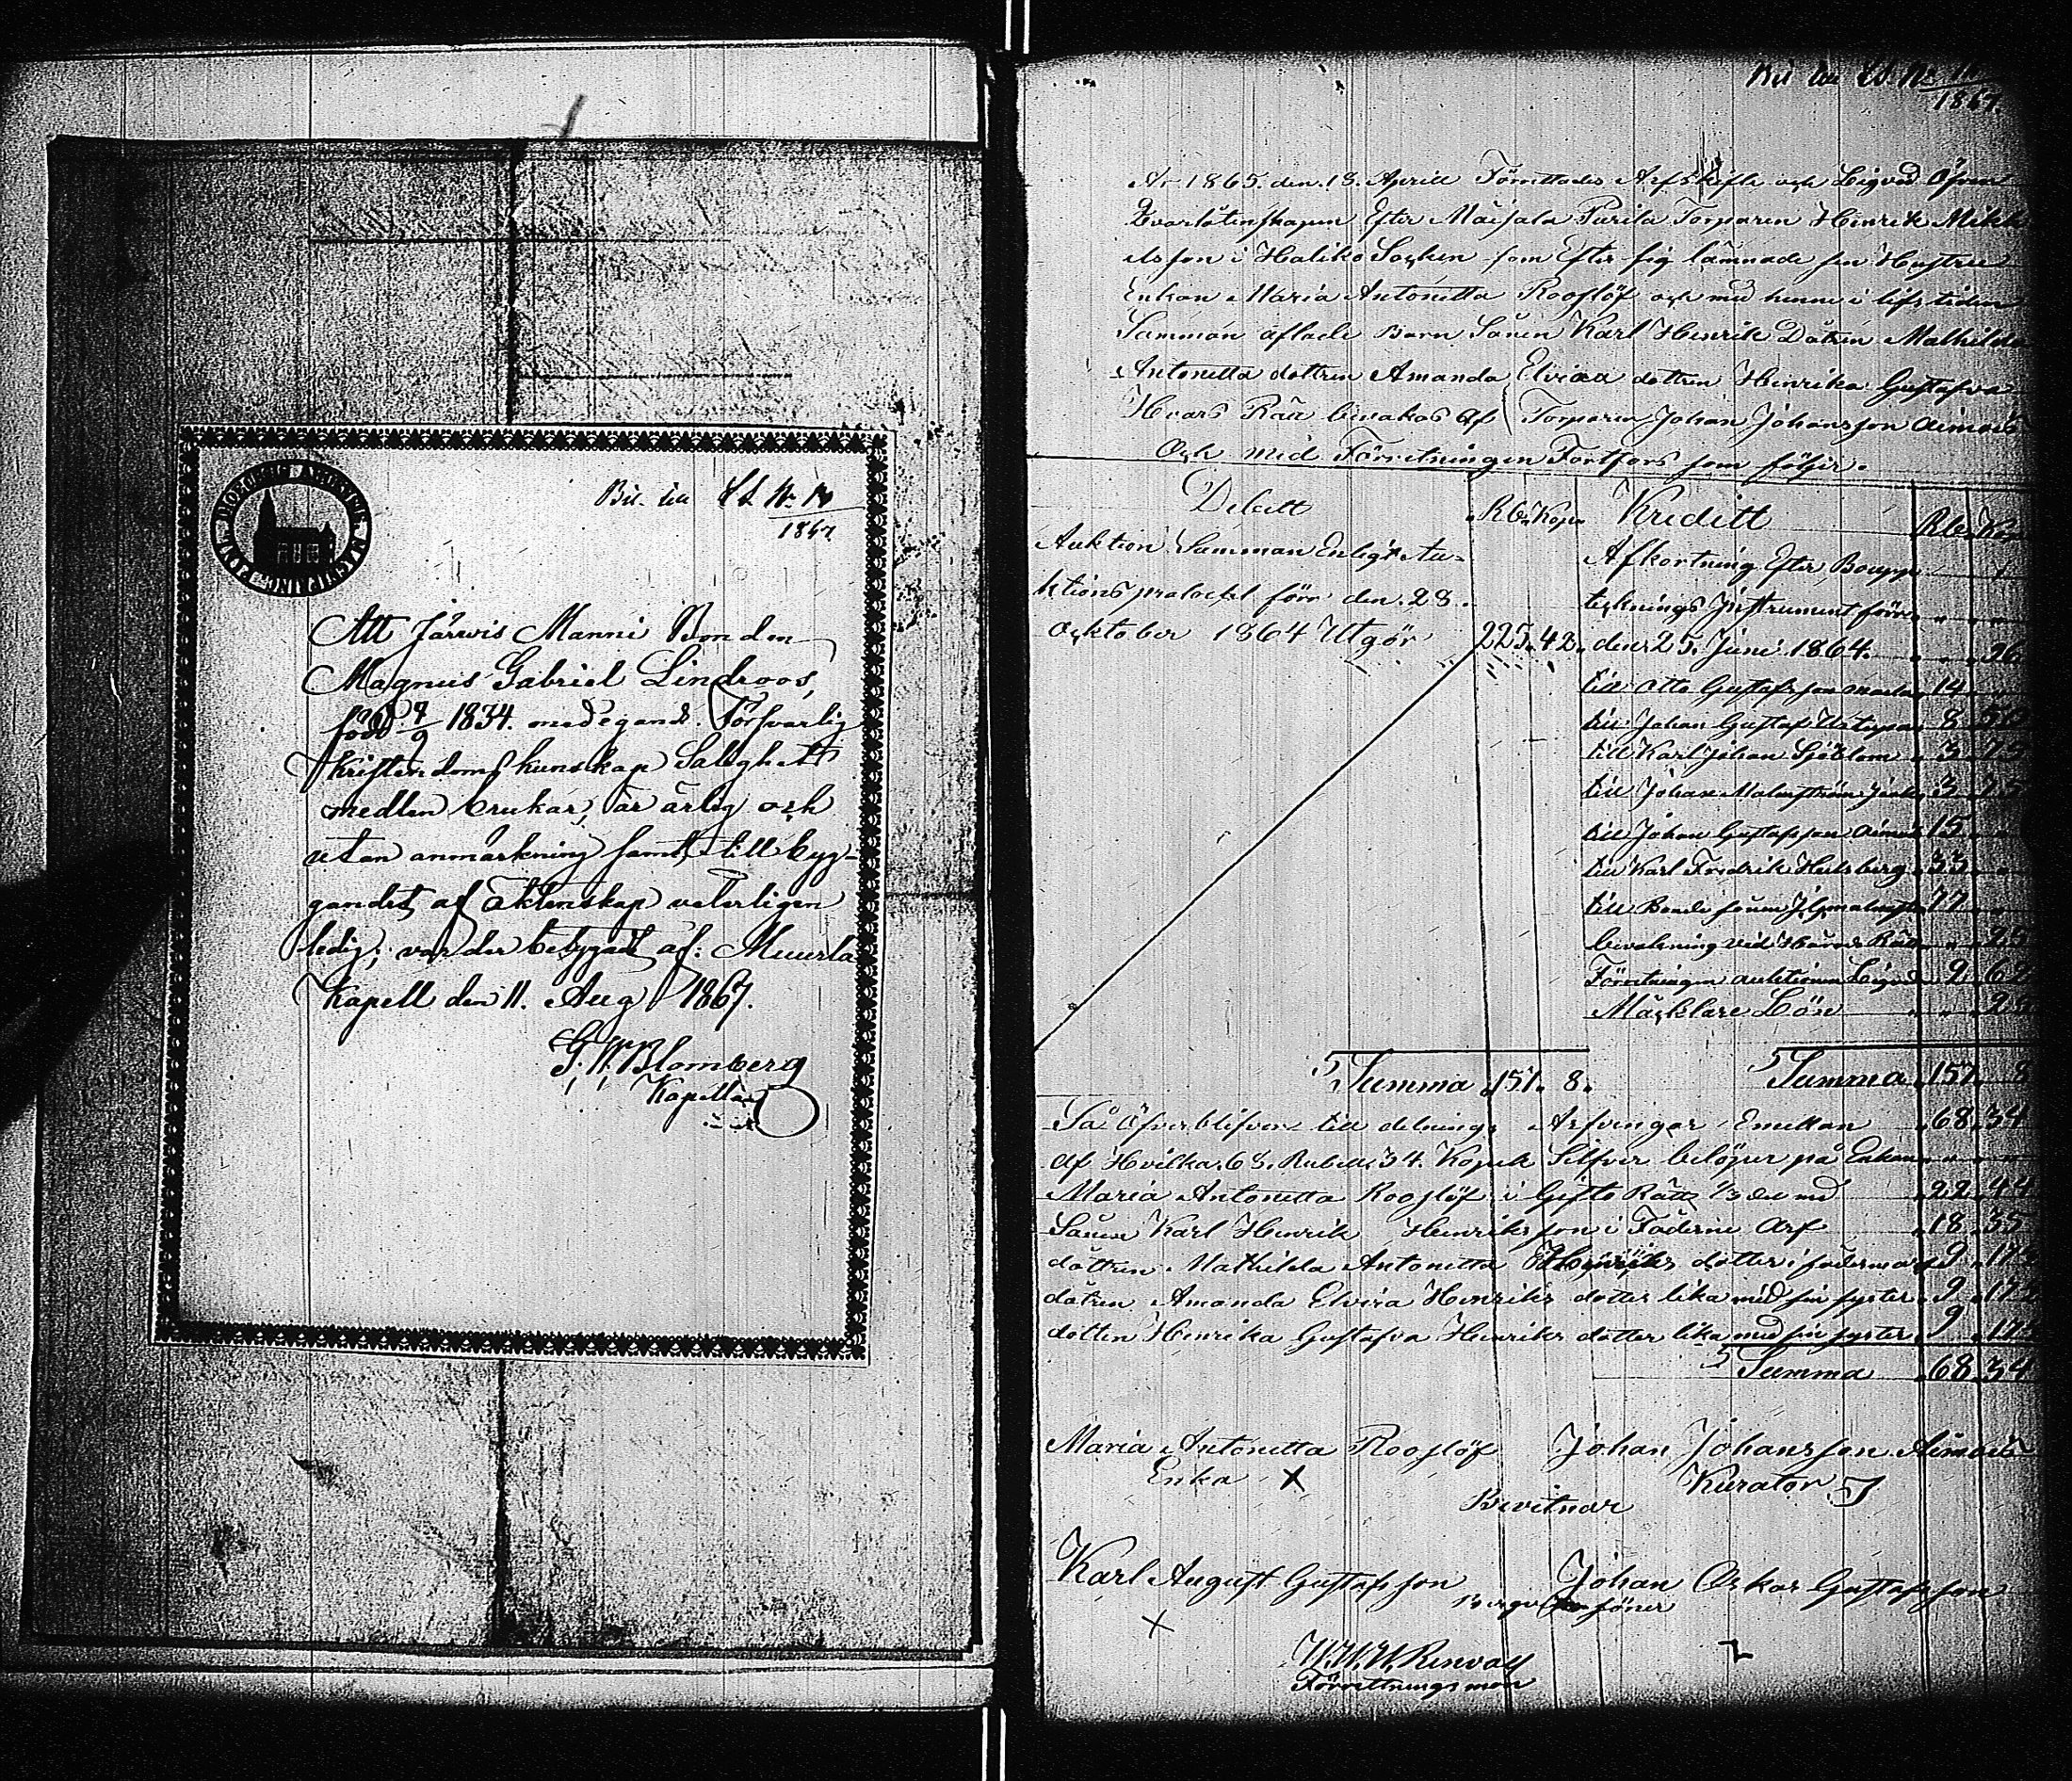 Bil. till Ld. Nr.
1867
Att Järwis Manni Bonden
Magnus Gabriel Lindroos,
född 9/9 1834. medegande. Försvarlig
Kristendoms kunskap Salighets
medlen brukar, är ärlig och
utan anmärkning samt till byg-
gandet af Äktenskap veterligen
ledig; varder betygadt af: Muurla
Kapell den 11. Aug 1867.
G. W. Blomberg
Kapellan
Bil till Ld. Nr.
1867
År 1865. den 18. Aprill Förrettades Arfskifte och Liqvid Öfver
Qvarlåtenskapen Efter Märjala Purila Torparen Henrik Mikk
elsson i Haliko Socken som Efter sig lämnade sin Hustru
Enkan Maria Antonetta Rooslöf och med henne i lifstiden
Samman aflade Barn Sånen Karl Henrik Dåtren Mathilda
Antonetta dottren Amanda Elvira dottren Henrika Gustafva
Hvars Rätt bevakas af Torparen Johan Johansson Aimois
Och med Förretningen Fortfors som följer.
Debett Rb. Kop. Kreditt Rb. Kop
Auktion Summan Enligt Au-
ktions protocol förr den 28.
Ocktober 1864 Utgör 225. 42.
Afkortning Efter Boupp
teknings Instrument förr
den 25. Juni 1864. 36
till Otto Gustafsson 14
till Johan Gustaf 8. 50
till Karl Johan Sjöblom 3. 75
till Johan Malmström 3. 75
till Johan Gustafsson Aimois 15
till Karl Fredrik Helsberg 33
till 77
bevakning vid Härads Rätt 25
Förretningen auktionen Liqvid 2. 62
Mäcklare Lön 25
Summa 157. 8. Summa 157. 8
Så Öfverblifver till delnings Arfvingar Emellan 68. 34
Af Hvilka 68. Rubell 34. Kopek Silfver belöper på Enkan
Maria Antonetta Rooslöf i Gifto Rätt 1/3 del med 22. 44
Sånen Karl Henrik Henriksson i Fäderne Arf 18. 35
dottren Mathilda Antonetta Henriks dotter i fäderne arf 9. 17
dåtren Amanda Elvira Henriks dotter lika med sin syster 9. 17
dotten Henrika Gustafva Henriks dotter lika med sin syster 9. 17
Summa 68. 34
Maria Antonetta Rooslöf Johan Johansson Aimois
Enka X Kurator
Bevitnar
Karl August Gustafsson Johan Oskar Gustafsson
söner
X
Renvall
Förrettningsman